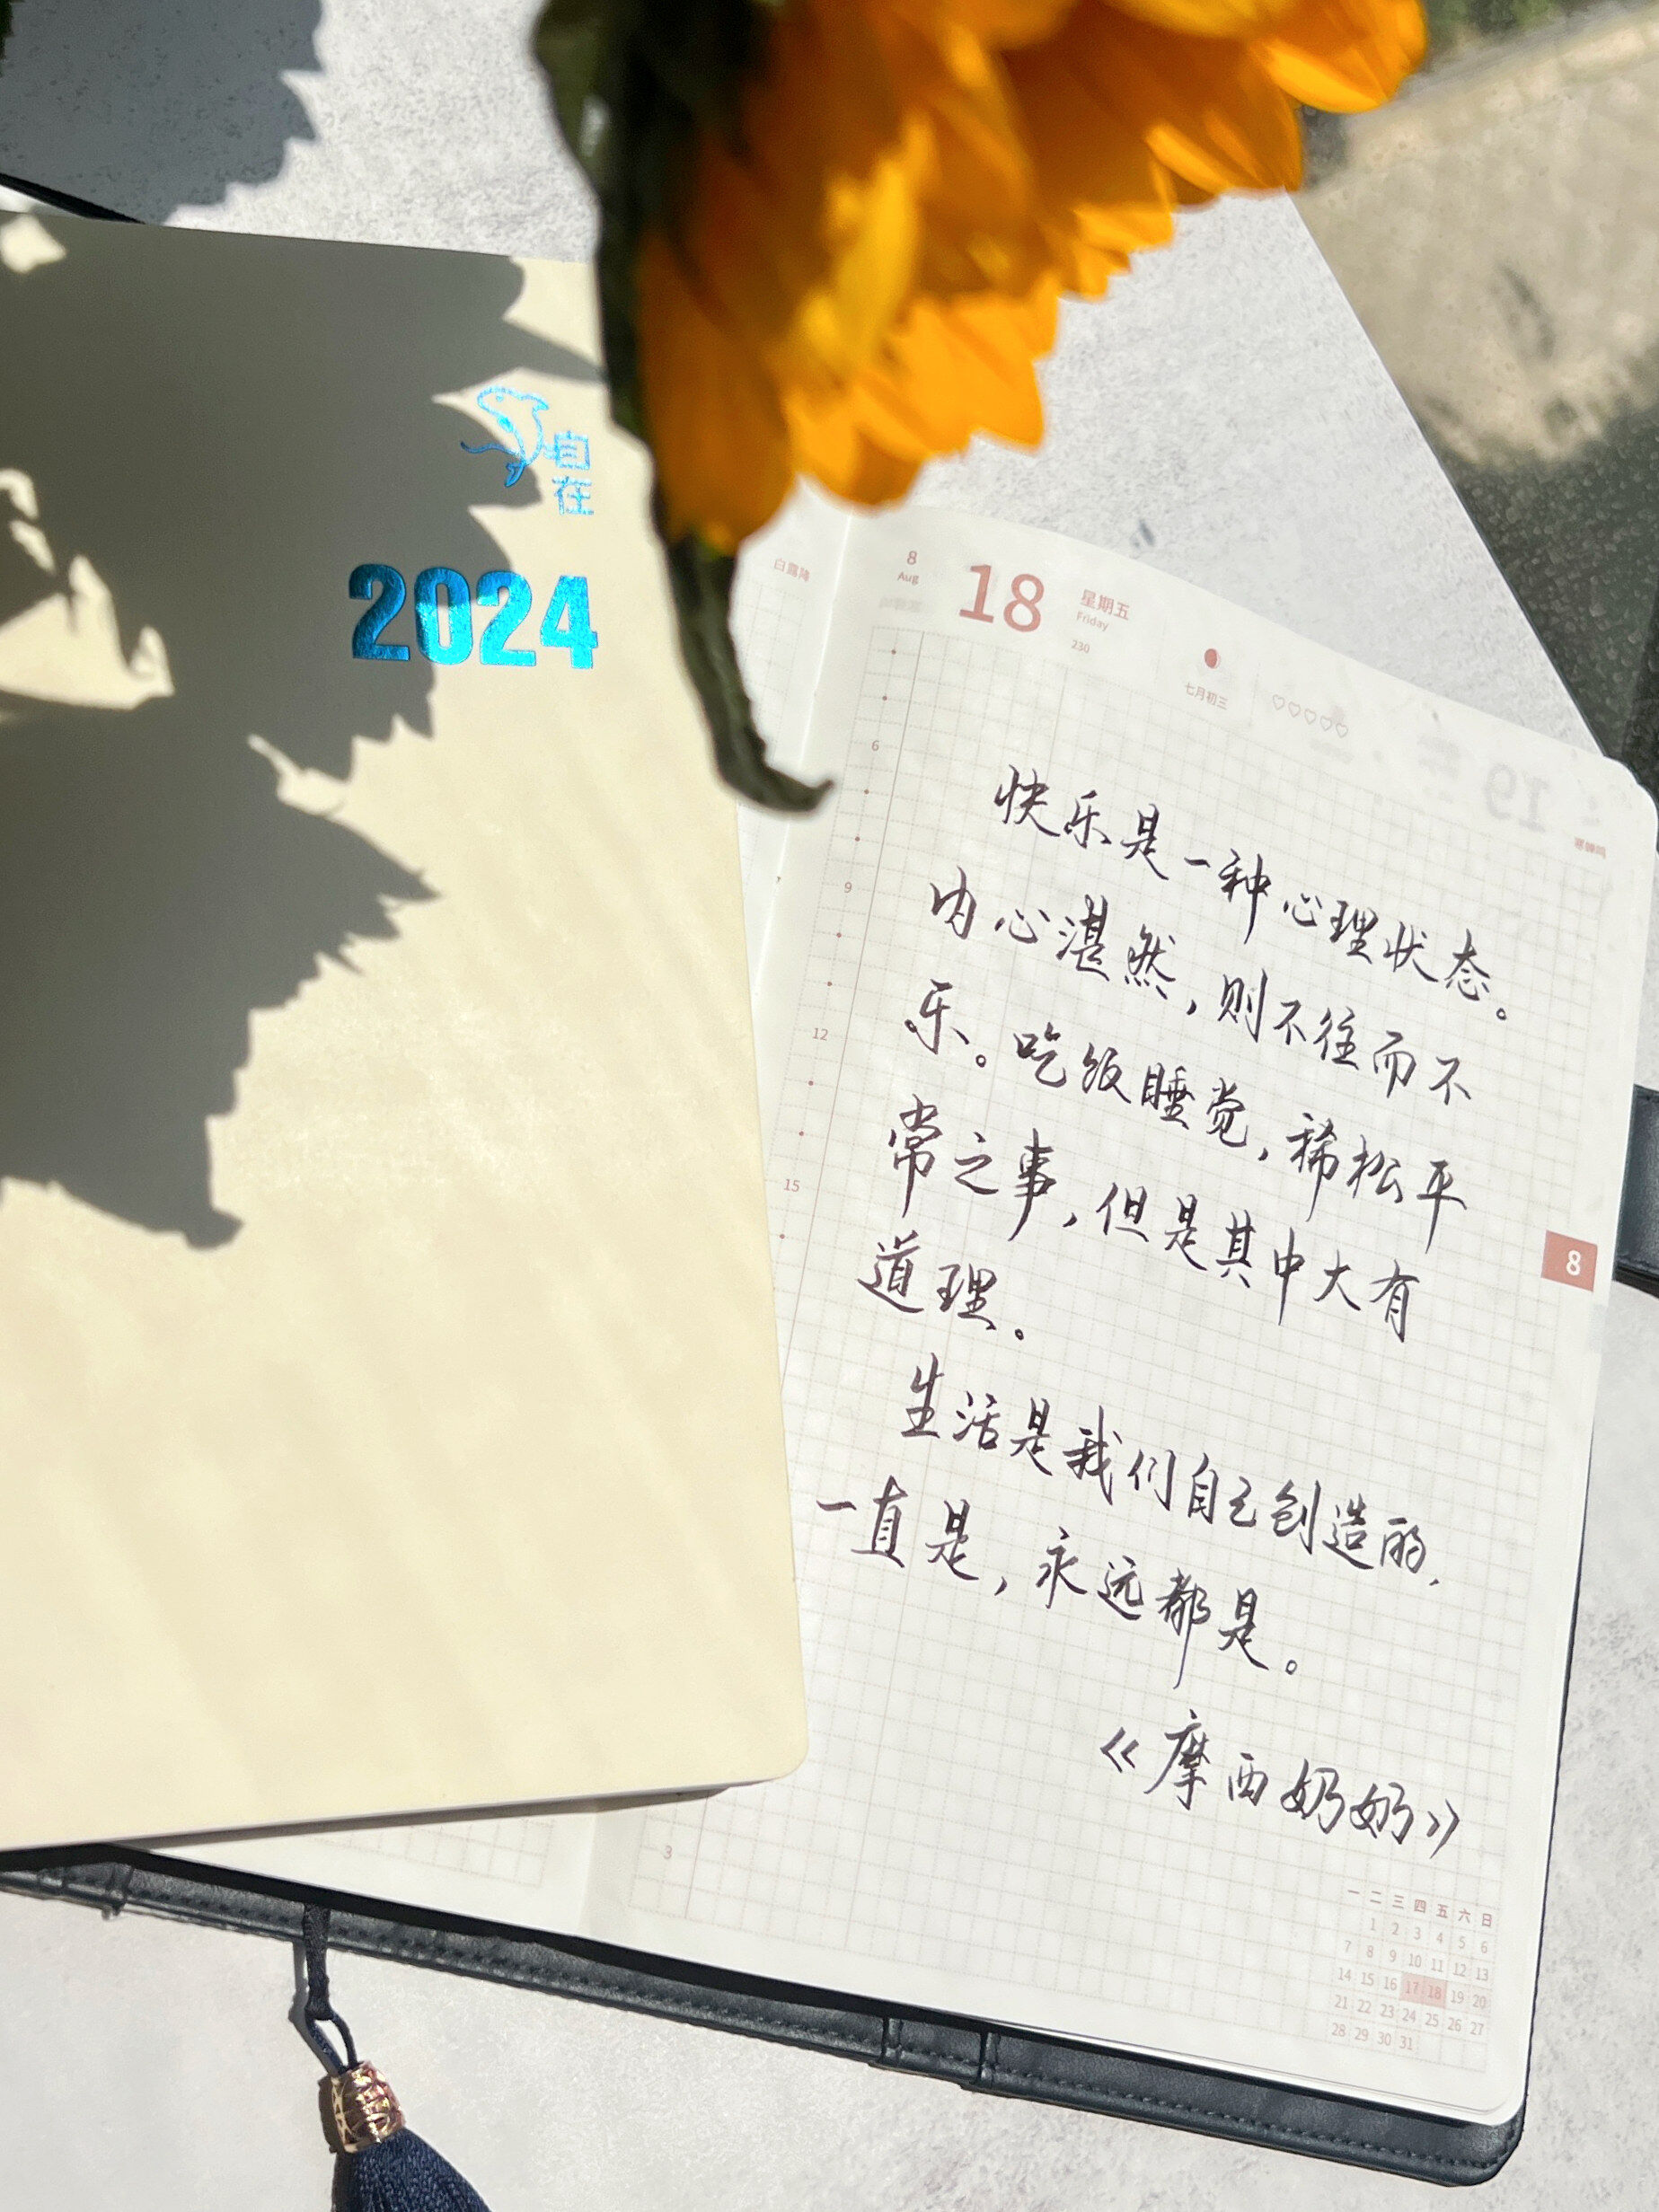 自在
2024
白露降
8
Aug
18
星期五
Friday
230
七月初三
19
6
9
12
15
3
8
快乐是一种心理状态。
内心湛然，则不往而不
乐。吃饭睡觉，稀松平
常之事，但是其中大有
道理。
生活是我们自己创造的，
一直是，永远都是。
《摩西奶奶》
一 二 三 四 五 六 日
1 2 3 4 5 6
7 8 9 10 11 12 13
14 15 16 17 18 19 20
21 22 23 24 25 26 27
28 29 30 31